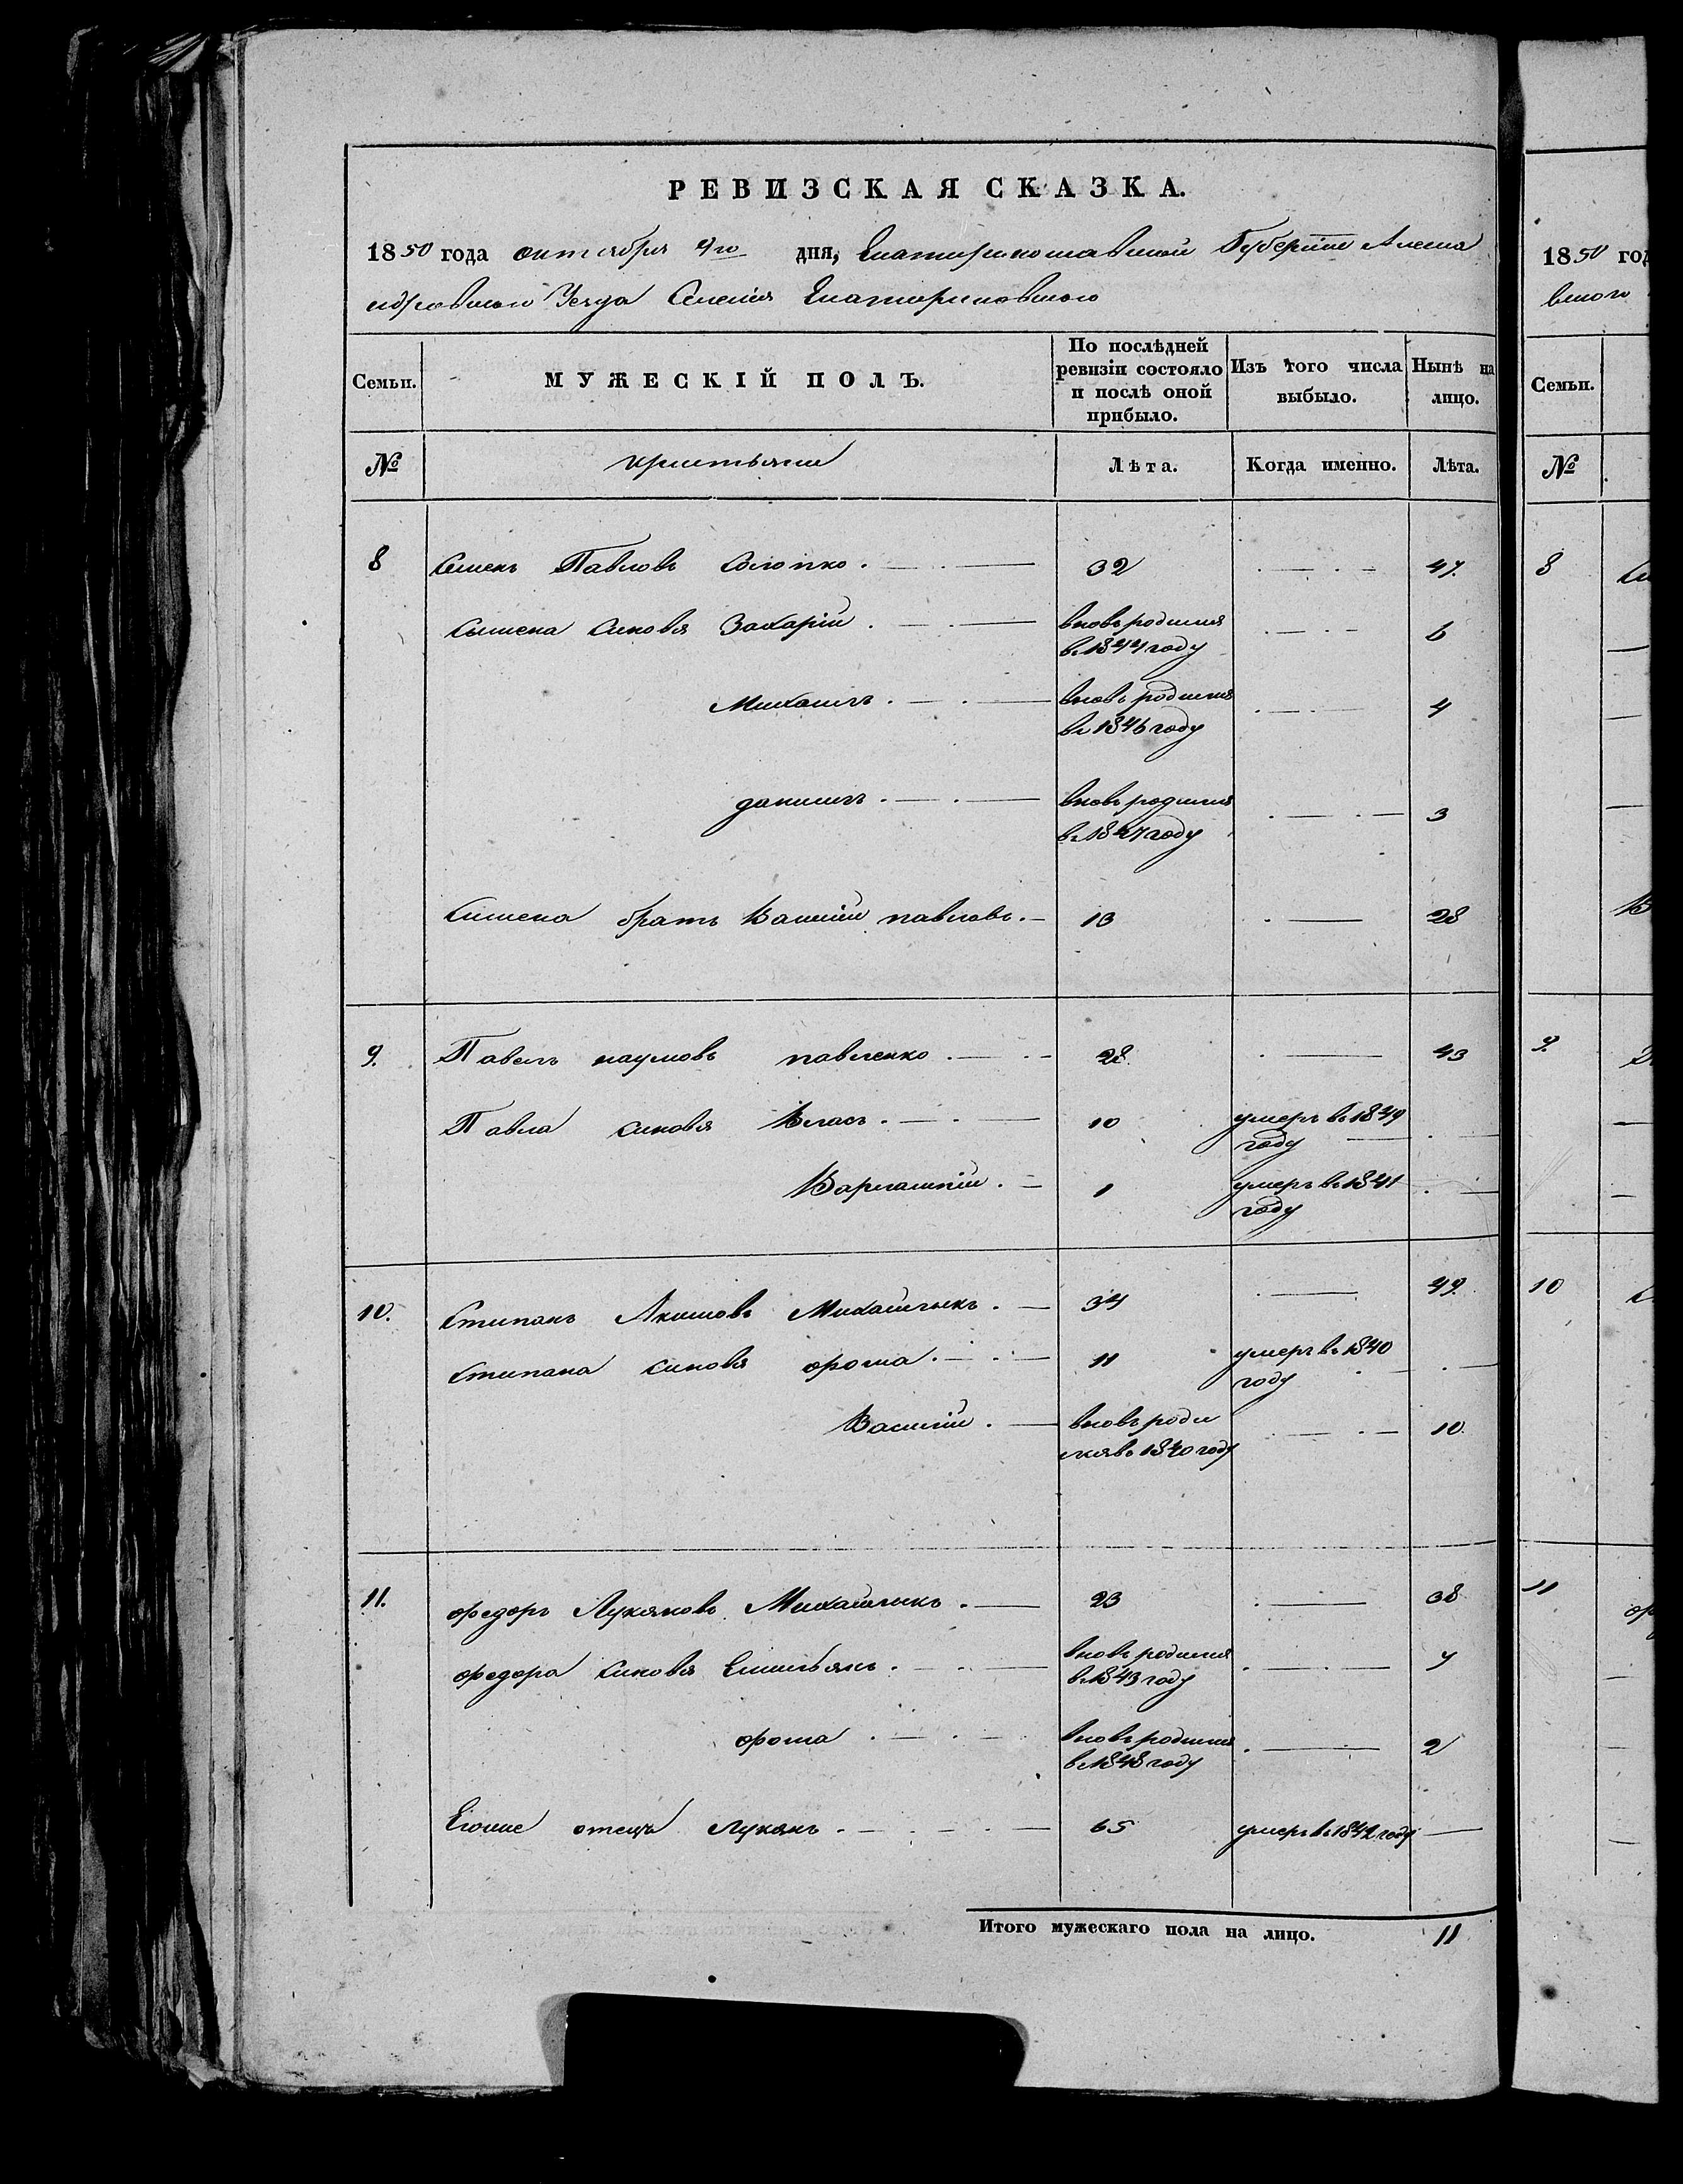 РЕВИЗСКАЯ СКАЗКА.
1850 года октября 9го дня, Екатеринославской Губернiи Алекса
ндровского Уезда Селенiя Екатериновского
Семьи. МУЖЕСКIЙ ПОЛЪ. По послѣдней ревизiи состояло и послѣ оной прибыло. Изъ того числа выбыло. Нынѣ на лицо.
№ крестьяне Лѣта. Когда именно. Лѣта.
8 Семенъ Павловъ Солопко. 32 47.
Семена синовя Захарiй. вновь родился в. 1844 году 6
Михаилъ. вновь родился в. 1846 году 4
данилъ. вновь родился в. 1847 году 3
Симена братъ Василiй павловъ. 13 28
9. Павелъ наумовъ павленко. 28 43
Павла синовя Власъ. 10 умеръ в. 1849 году
Варлампiй. 1 умеръ в. 1841 году
10. Степанъ Акимовъ Михайлыкъ. 34 49.
Степана синовя фома. 11 умеръ в. 1840 году
Василiй. вновь роди лся в. 1840 году 10.
11. федоръ Лукяновъ Михайлыкъ. 23 38
федора синовя Емельянъ. вновь родился в. 1843 году 7
фома вновь родился в. 1848 году 2
Егоже отецъ лукянъ. 65 умеръ в. 1842 году
Итого мужескаго пола на лицо. 11
1850 год
вского
Семьи.
№
8
9.
10
11